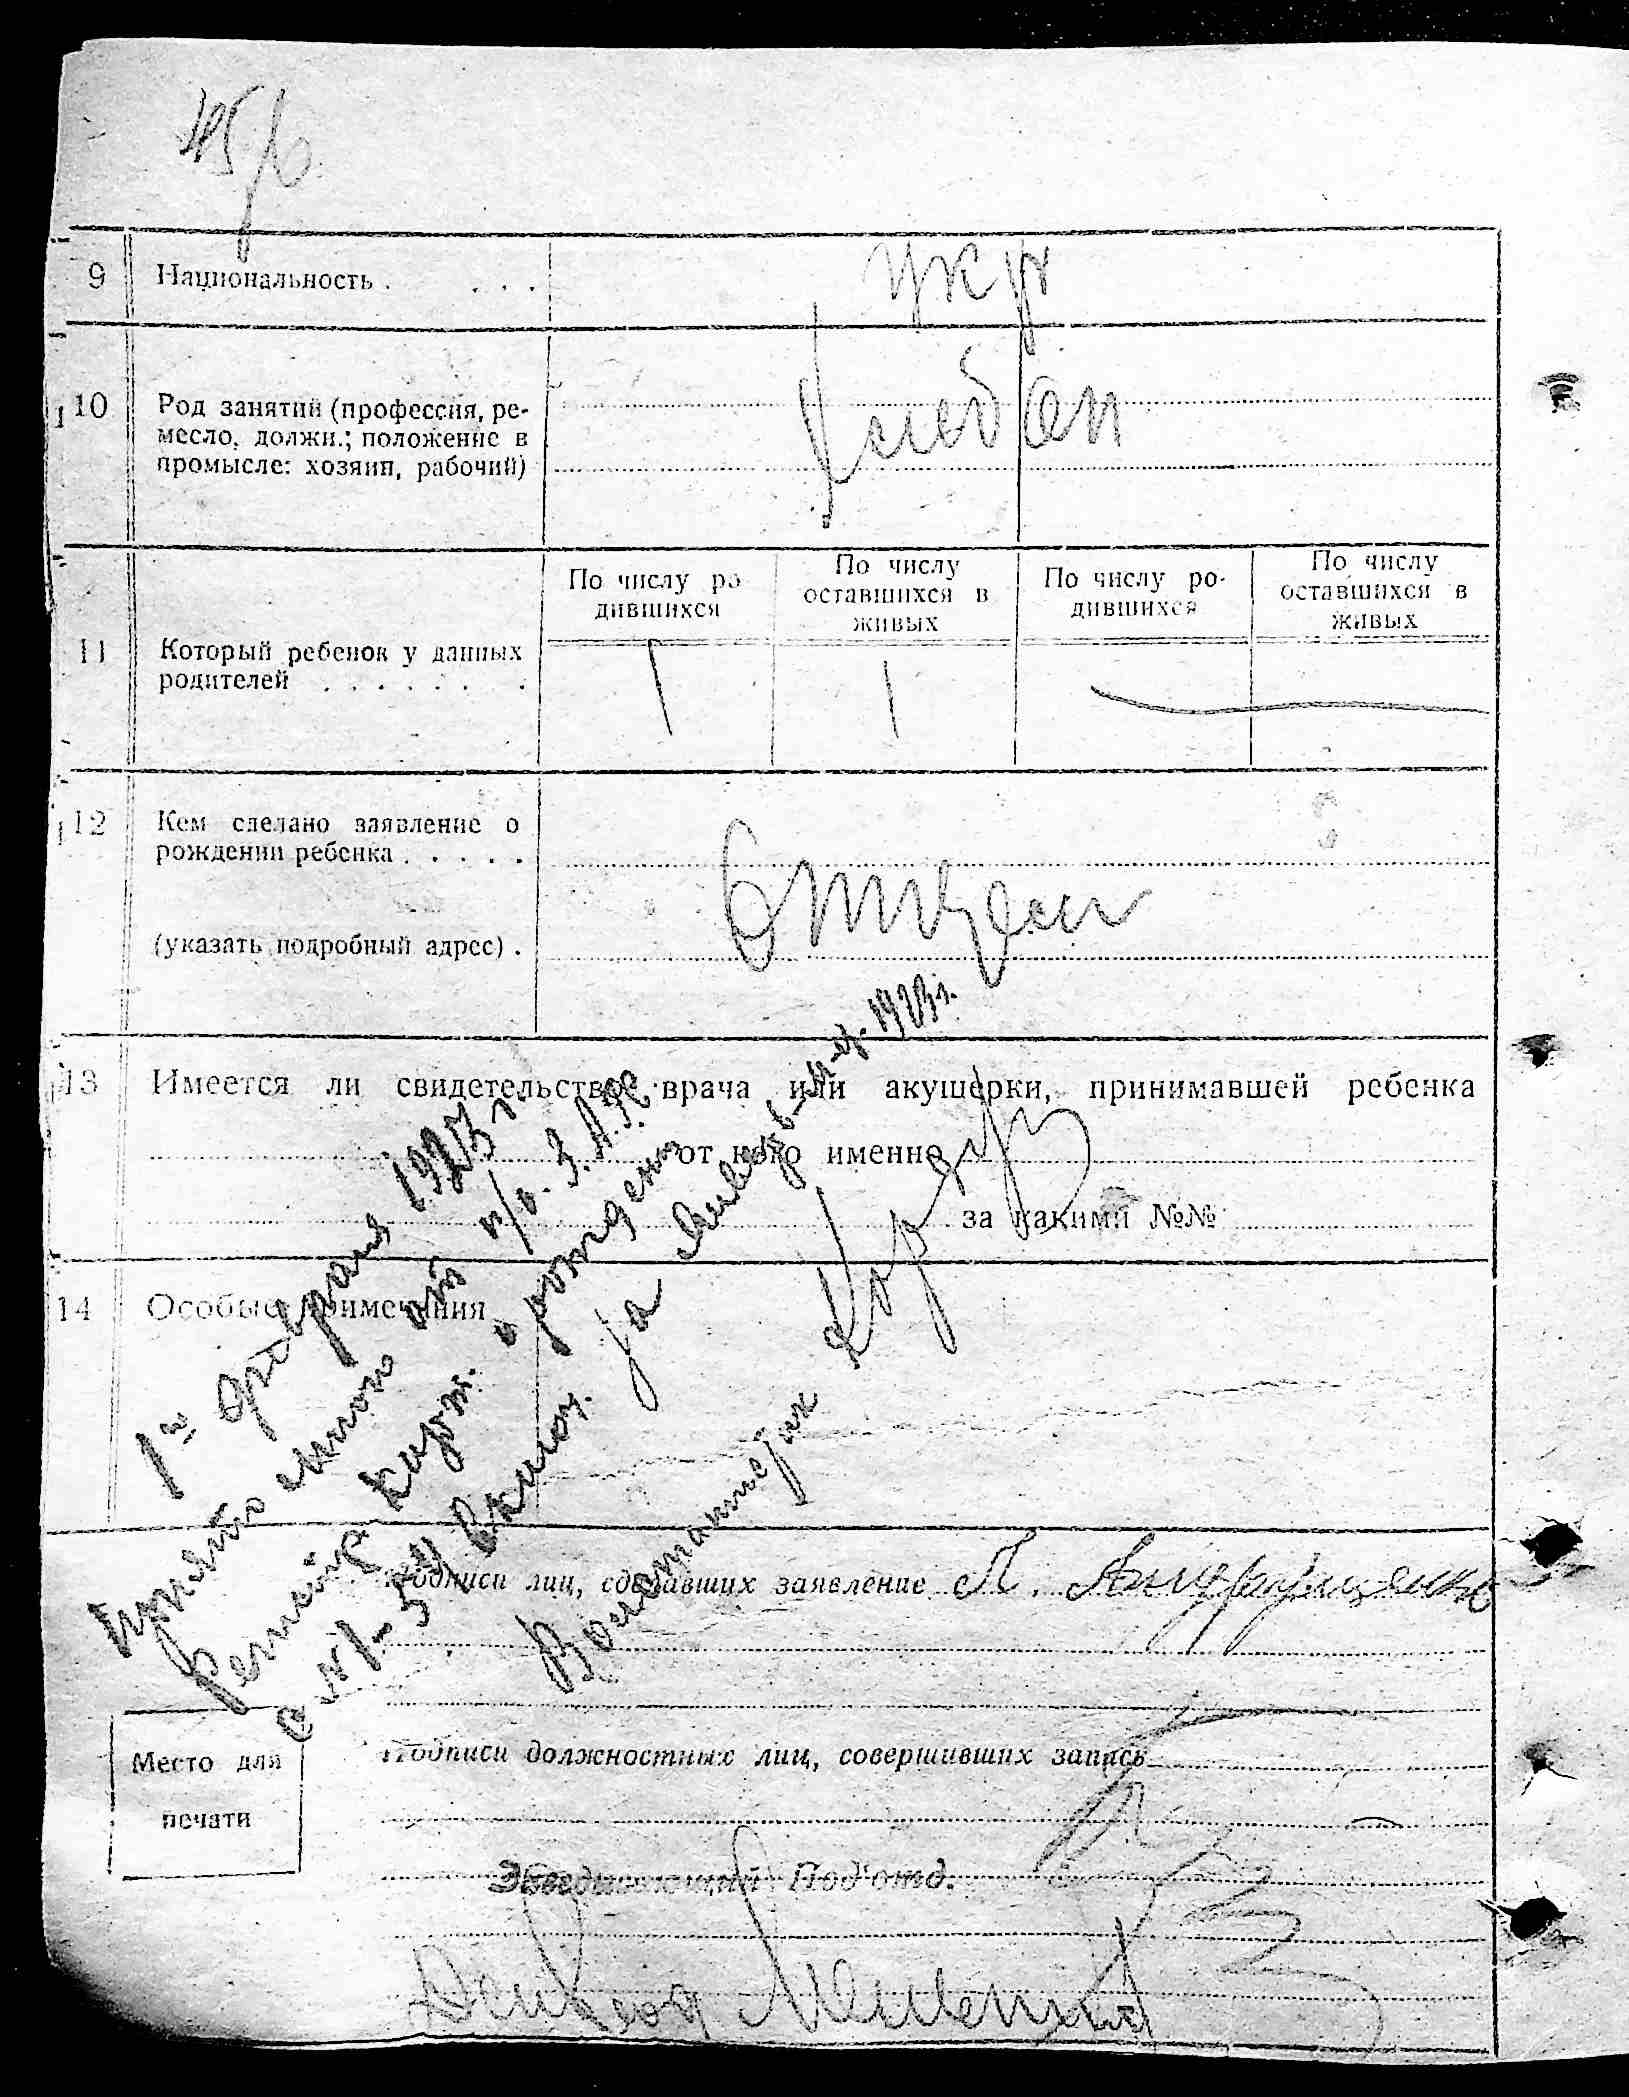 9 Национальность . . . . укр
10 Род занятий (профессия, ре-
месло, должн.; положение в
промысле: хозяин, рабочий)
Хлебоп
11 Который ребенок у данных
родителей . . . . . . .
По числу ро
дившихся
По числу
оставшихся в
живых
По числу ро-
дившихся
По числу
оставшихся в
живых
1 1
12 Кем сделано заявление о
рождении ребенка . . . . .
Отцом
(указать подробный адрес) .
13 Имеется ли свидетельство врача или акушерки, принимавшей ребенка
от кого именно
за какими №№
14 Особые примечания
1го февраля 1923 г.
принято мною от п/о. З.А.Г.С.
карт. о рождении
с №1-54 включ. за Январь м-ц. 1923 г.
Подписи лиц, сделавших заявление
Место для
печати
Подписи должностных лиц, совершивших запись
Заведывающий Под'отд.